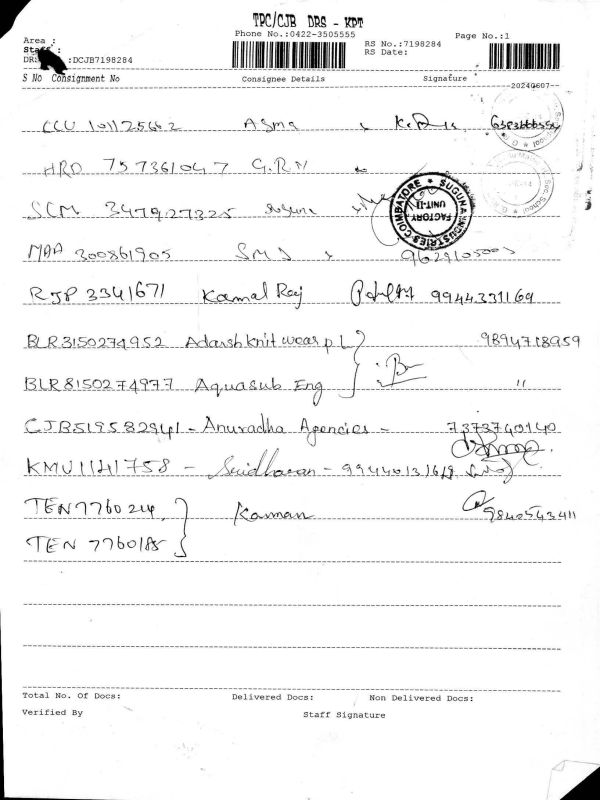 TPC/CJB DRS - KPT
Phone No.:0422-3505555
Page No.:1
Area :
RS No.:7198284
Staff :
RS Date:
DRS :DCJB7198284
S No Consignment No Consignee Details Signature
20240607
CCU 101125662 Asma
HRD 757361047 G.R.N
SCM 347927325 suguna
SUGUNA INDUSTRIES-COIMBATORE
FACTORY
UNIT-II
MAA 300861905 SMS 9629105003
RJP 3341671 Kamal Raj 9944331169
BLR3150274952 Adarsh Knit wear p L 9894718959
BLR8150274977 Aquasub Eng "
CJB519582941 - Anuradha Agencies - 7373740140
KMU1141758 - Sridharan -
TEN7760214 Kannan 9840543411
TEN 7760185
Total No. Of Docs: Delivered Docs: Non Delivered Docs:
Verified By Staff Signature